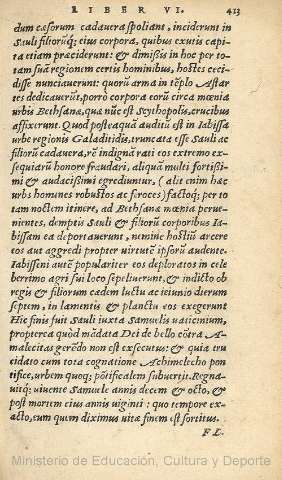 LIBER VI. 413
dum cæsorum cadauera spoliant, inciderunt in
Sauli filiorũq́; eius corpora, quibus exutis capi
ta etiam præciderunt: & dimißis in hoc per to-
tam suã regionem certis hominibus, hostes ceci-
disse nunciauerunt: quorũ arma in tẽplo Astar
tes dedicauerũt, porrò corpora eorũ circa mœnia
urbis Bethsanæ, quæ nũc est Scythopolis, crucibus
affixerunt. Quod posteaquã auditũ est in Iabissa
urbe regionis Galaditidis, truncata esse Sauli ac
filiorũ cadauera, rẽ indignã rati eos extremo ex-
sequiarũ honore fraudari, aliquã multi fortißi-
mi & audacißimi egrediuntur, (alit enim hæc
urbs homines robustos ac feroces) factoq́; per to
tam noctem itinere, ad Bethsanæ mœnia perue-
nientes, demptis Sauli & filiorũ corporibus Ia-
bissam ea deportauerunt, nemine hostiũ arcere
eos aut aggredi propter uirtutẽ ipsorũ audente.
Iabisseni autẽ populariter eos deploratos in cele
berrimo agri sui loco sepeliuerunt, & indicto ob
regis & filiorum cædem luctu ac ieiunio dierum
septem, in lamentis & planctu eos exegerunt
Hic finis fuit Sauli iuxta Samuelis uaticinium,
propterea quòd mãdata Dei de bello cõtra A-
malecitas gerẽdo non est exsecutus: & quia tru
cidato cum tota cognatione Achimelecho pon
tifice, urbem quoq; põtificalem subuertit. Regna-
uitq́; uiuente Samuele annis decem & octo, &
post mortem eius annis uiginti: quo tempore ex-
acto, eum quem diximus uitæ finem est sortitus.
FL.
Ministerio de Educación, Cultura y Deporte